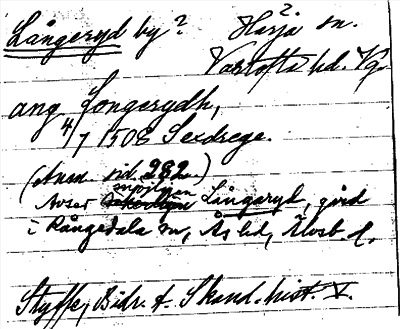 Långeryd by? Härja? sn.
Vartofta hd. Vg
ang Longerydh,
4/7 1508 Sexdrega.
(Anm. sid. 282)
Avser möjligen Långaryd, gård
i Rångedala sn, Ås hd, Älvsb. l.
Styffe, Bidr. t. Skand. hist. V.